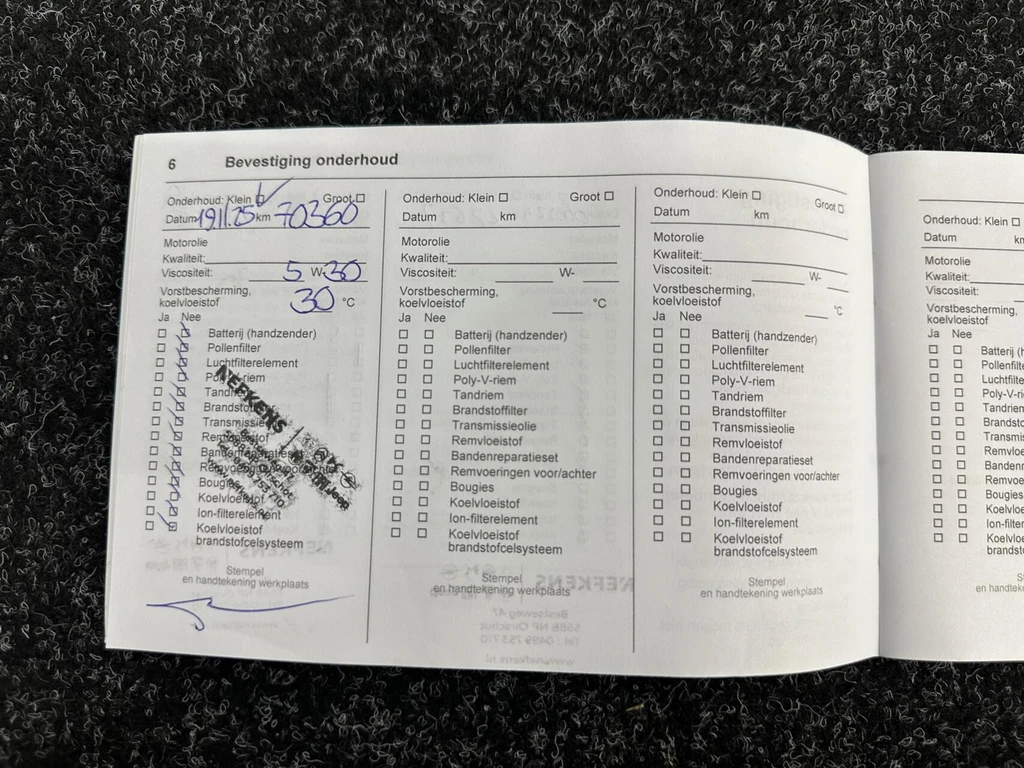 6 Bevestiging onderhoud
Onderhoud: Klein Groot
Datum 19.11.25 km 70360
Motorolie
Kwaliteit:
Viscositeit: 5 W-30
Vorstbescherming,
koelvloeistof 30 °C
Ja Nee
Batterij (handzender)
Pollenfilter
Luchtfilterelement
Poly-V-riem
Tandriem
Brandstoffilter
Transmissieolie
Remvloeistof
Bandenreparatieset
Remvoeringen voor/achter
Bougies
Koelvloeistof
Ion-filterelement
Koelvloeistof
brandstofcelsysteem
NEFKENS
Stempel
en handtekening werkplaats
Onderhoud: Klein Groot
Datum km
Motorolie
Kwaliteit:
Viscositeit: W-
Vorstbescherming,
koelvloeistof °C
Ja Nee
Batterij (handzender)
Pollenfilter
Luchtfilterelement
Poly-V-riem
Tandriem
Brandstoffilter
Transmissieolie
Remvloeistof
Bandenreparatieset
Remvoeringen voor/achter
Bougies
Koelvloeistof
Ion-filterelement
Koelvloeistof
brandstofcelsysteem
Stempel
en handtekening werkplaats
NEFKENS
Bestseweg 47
5688 NP Oirschot
Tel.: 0499 753710
www.nefkens.nl
Onderhoud: Klein Groot
Datum km
Motorolie
Kwaliteit:
Viscositeit: W-
Vorstbescherming,
koelvloeistof °C
Ja Nee
Batterij (handzender)
Pollenfilter
Luchtfilterelement
Poly-V-riem
Tandriem
Brandstoffilter
Transmissieolie
Remvloeistof
Bandenreparatieset
Remvoeringen voor/achter
Bougies
Koelvloeistof
Ion-filterelement
Koelvloeistof
brandstofcelsysteem
Stempel
en handtekening werkplaats
Onderhoud: Klein
Datum km
Motorolie
Kwaliteit:
Viscositeit:
Vorstbescherming,
koelvloeistof
Ja Nee
Batterij (h
Pollenfilte
Luchtfilte
Poly-V-ri
Tandriem
Brandsto
Transmis
Remvloe
Bandenr
Remvoe
Bougies
Koelvloe
Ion-filter
Koelvloe
brandsto
Stempel
en handtekening werkp